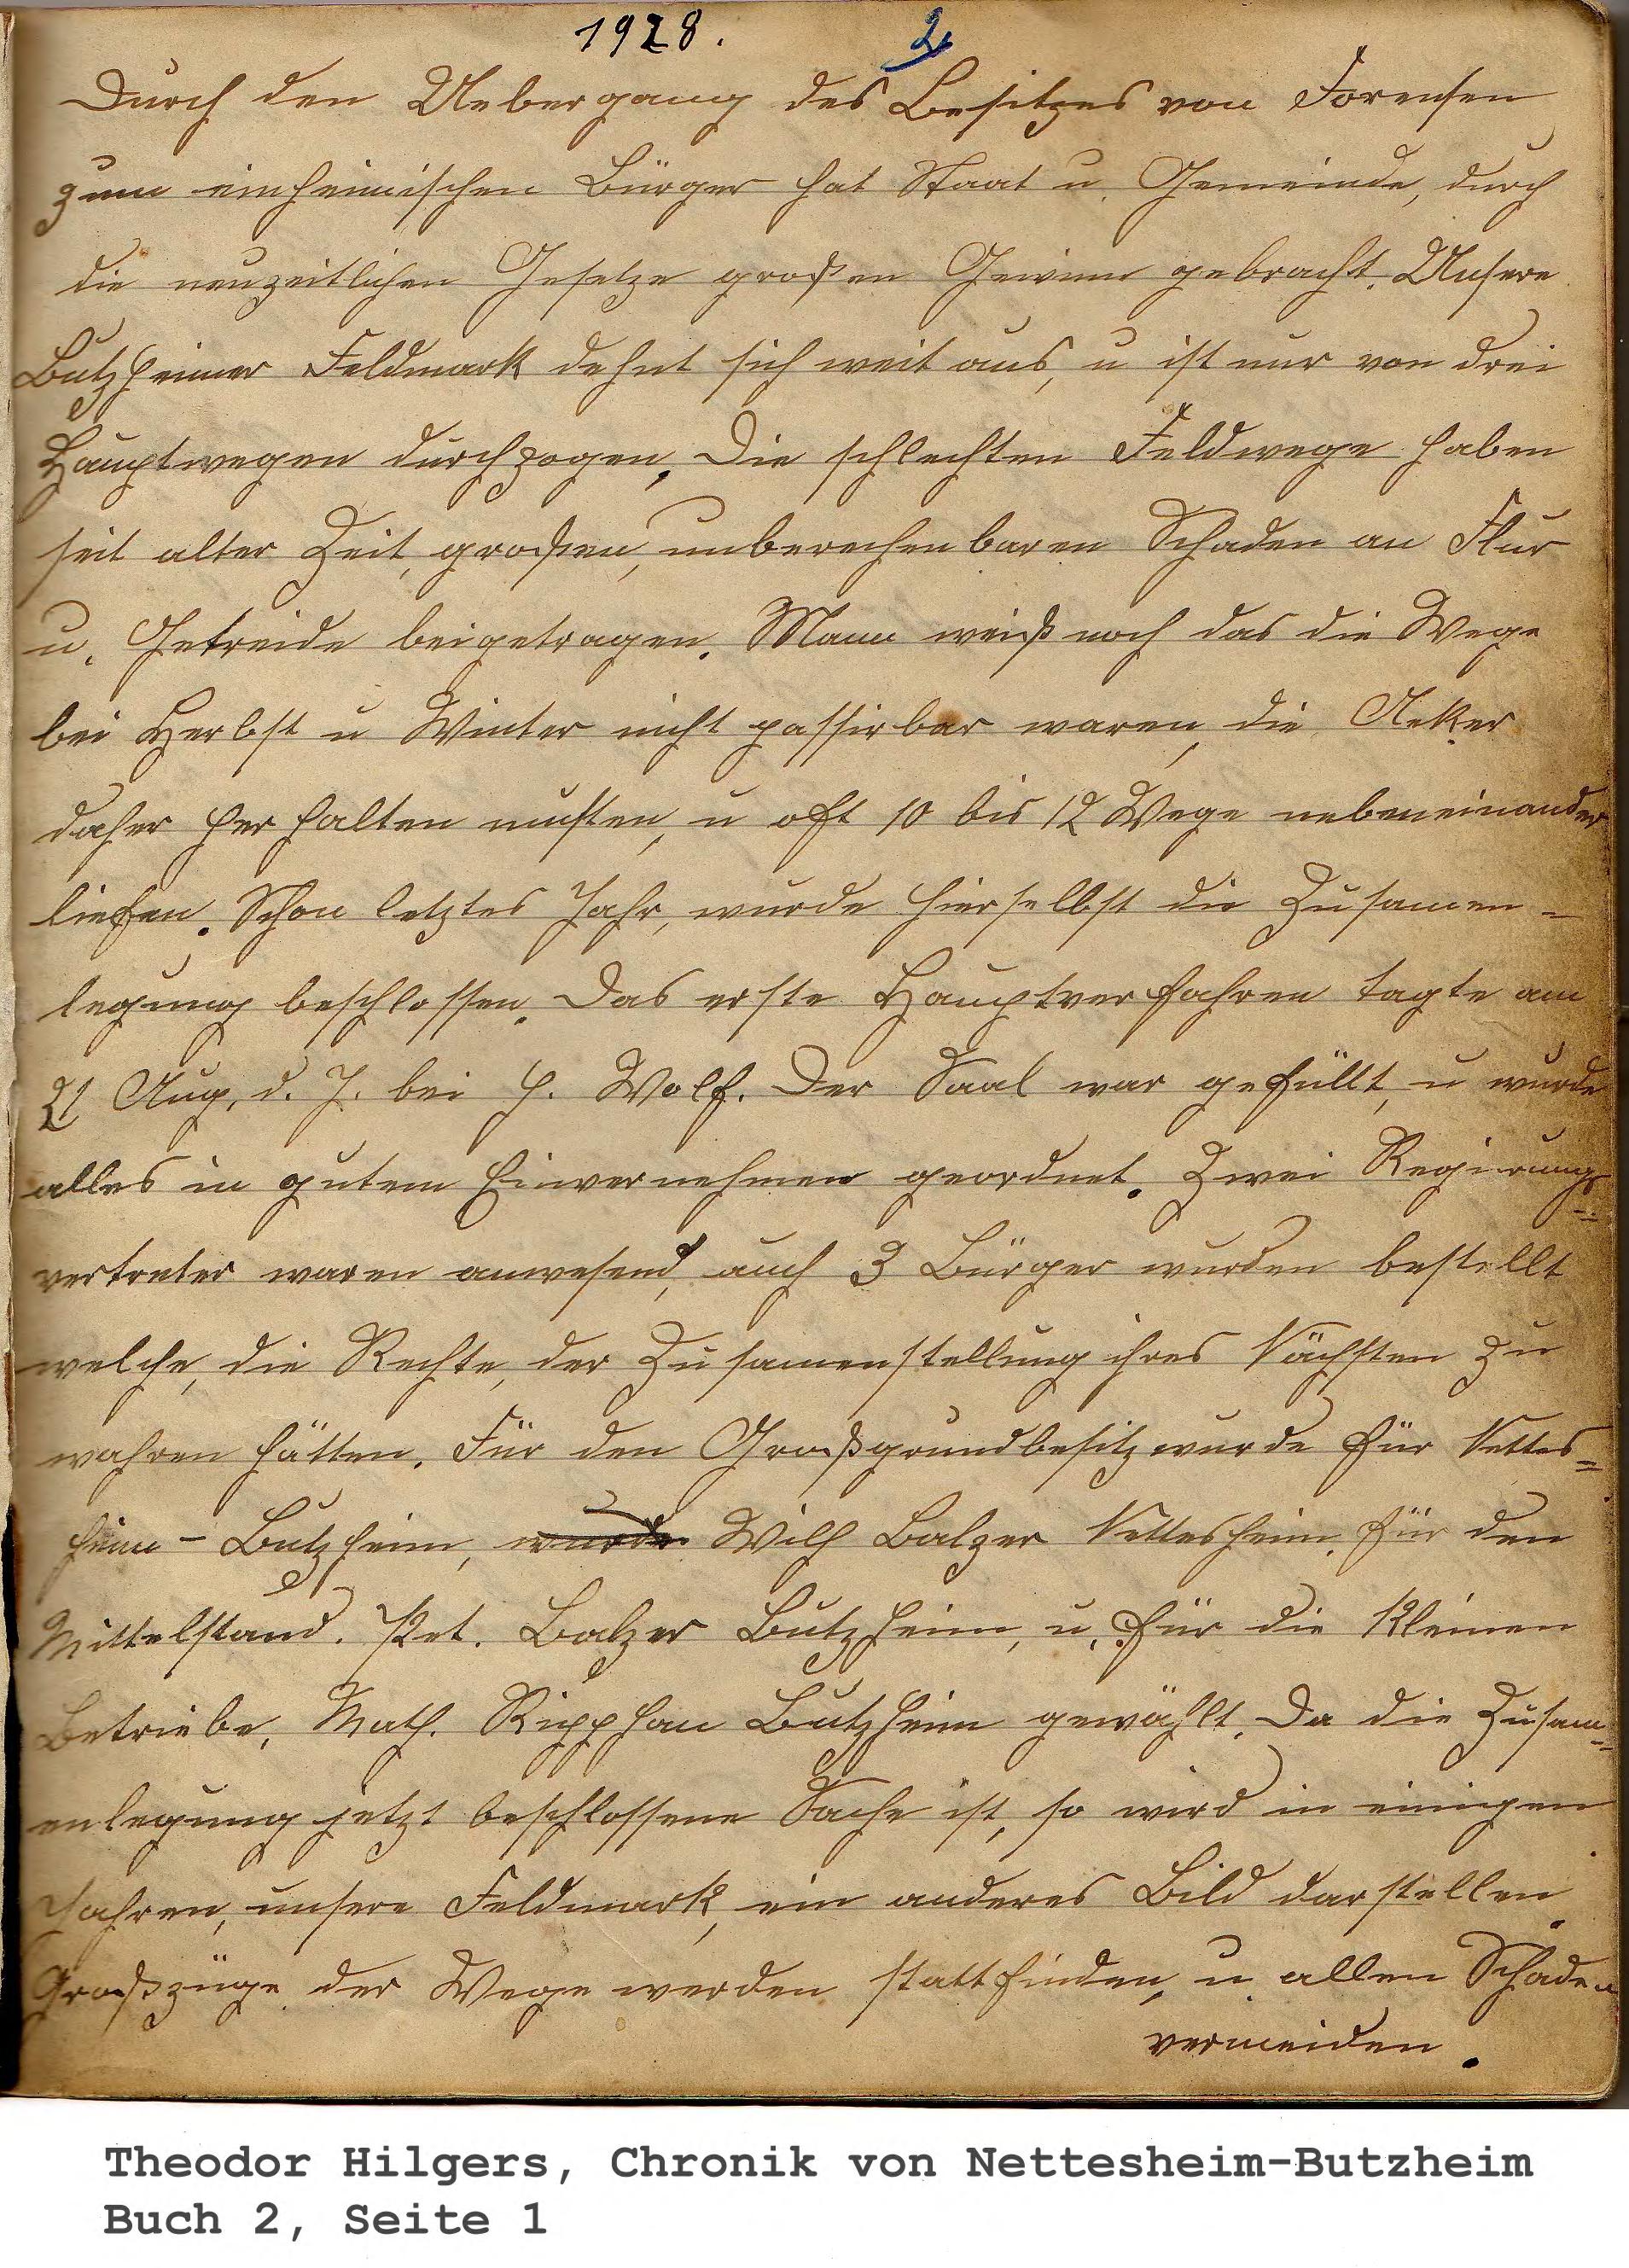 1928. 2,
Durch den Uebergang des Besitzes von Forensen
zum einheimischen Bürger hat Staat u. Gemeinde, durch
die neuzeitlichen Gesetze großen Gewinn gebracht. Unsere
Butzheimer Feldmark dehnt sich weit aus, u ist nur von drei
Hauptwegen durchzogen. Die schlechten Feldwege haben
seit alter Zeit, großen, unberechenbaren Schaden an Flur
u. Getreide beigetragen. Mann weiß noch das die Wege
bei Herbst u Winter nicht passirbar waren, die Aeker
daher herhalten musten, u oft 10 bis 12 Wege nebeneinander
liefen. Schon letztes Jahr, wurde hierselbst die Zusamen-
legung beschlossen. Das erste Hauptverfahren tagte am
21 Aug. d. J. bei H. Wolf. Der Saal war gefüllt, u wurde
alles in gutem Einvernehmen geordnet. Zwei Regierungs=
vertreter waren anwesend, auch 3 Bürger wurden bestellt
welche, die Rechte, der Zusamenstellung ihres Nächsten zu
wahren hätten. Für den Großgrundbesitz wurde für Nettes=
heim - Butzheim, wurde Wilh Balzer Nettesheim. für den
Mittelstand. Pet. Balzer Butzheim, u. für die Kleinen
Betriebe, Math. Ripphan Butzheim gewählt. Da die Zusam=
enlegung jetzt beschlossene Sache ist, so wird in einigen
Jahren, unsere Feldmark, ein anderes Bild darstellen.
Großzüge der Wege werden stattfinden, u. allen Schaden
vermeiden.
Theodor Hilgers, Chronik von Nettesheim-Butzheim
Buch 2, Seite 1